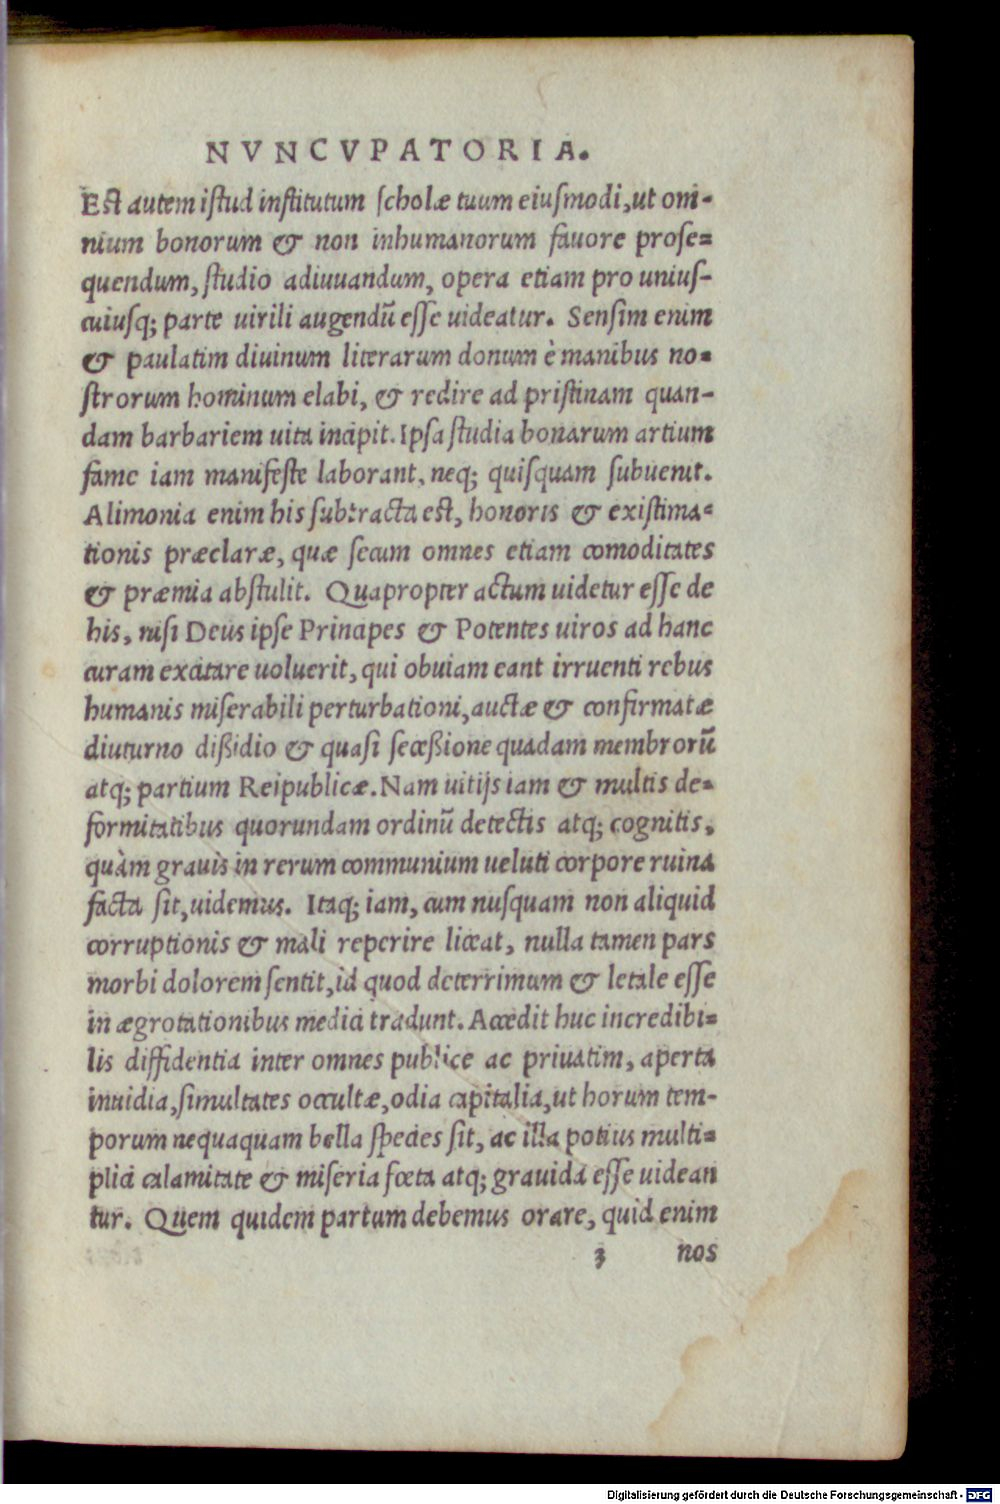 NVNCVPATORIA.
Est autem istud institutum scholæ tuum eiusmodi, ut om-
nium bonorum & non inhumanorum fauore prose=
quendum, studio adiuuandum, opera etiam pro unius-
cuiusq; parte uirili augendũ esse uideatur. Sensim enim
& paulatim diuinum literarum donum è manibus no=
strorum hominum elabi, & redire ad pristinam quan-
dam barbariem uita incipit. Ipsa studia bonarum artium
fame iam manifeste laborant, neq; quisquam subuenit.
Alimonia enim his subtracta est, honoris & existima=
tionis præclaræ, quæ secum omnes etiam comoditates
& præmia abstulit. Quapropter actum uidetur esse de
his, nisi Deus ipse Principes & Potentes uiros ad hanc
curam excitare uoluerit, qui obuiam eant irruenti rebus
humanis miserabili perturbationi, auctæ & confirmatæ
diuturno dißidio & quasi seceßione quadam membrorũ
atq; partium Reipublicæ. Nam uitijs iam & multis de=
formitatibus quorundam ordinũ detectis atq; cognitis,
quàm grauis in rerum communium ueluti corpore ruina
facta sit, uidemus. Itaq; iam, cum nusquam non aliquid
corruptionis & mali reperire liceat, nulla tamen pars
morbi dolorem sentit, id quod deterrimum & letale esse
in ægrotationibus medici tradunt. Accedit huc incredibi=
lis diffidentia inter omnes publice ac priuatim, aperta
inuidia, simultates occultæ, odia capitalia, ut horum tem-
porum nequaquam bella species sit, ac illa potius multi=
plici calamitate & miseria fœta atq; grauida esse uidean
tur. Quem quidem partum debemus orare, quid enim
3 nos
Digitalisierung gefördert durch die Deutsche Forschungsgemeinschaft - DFG